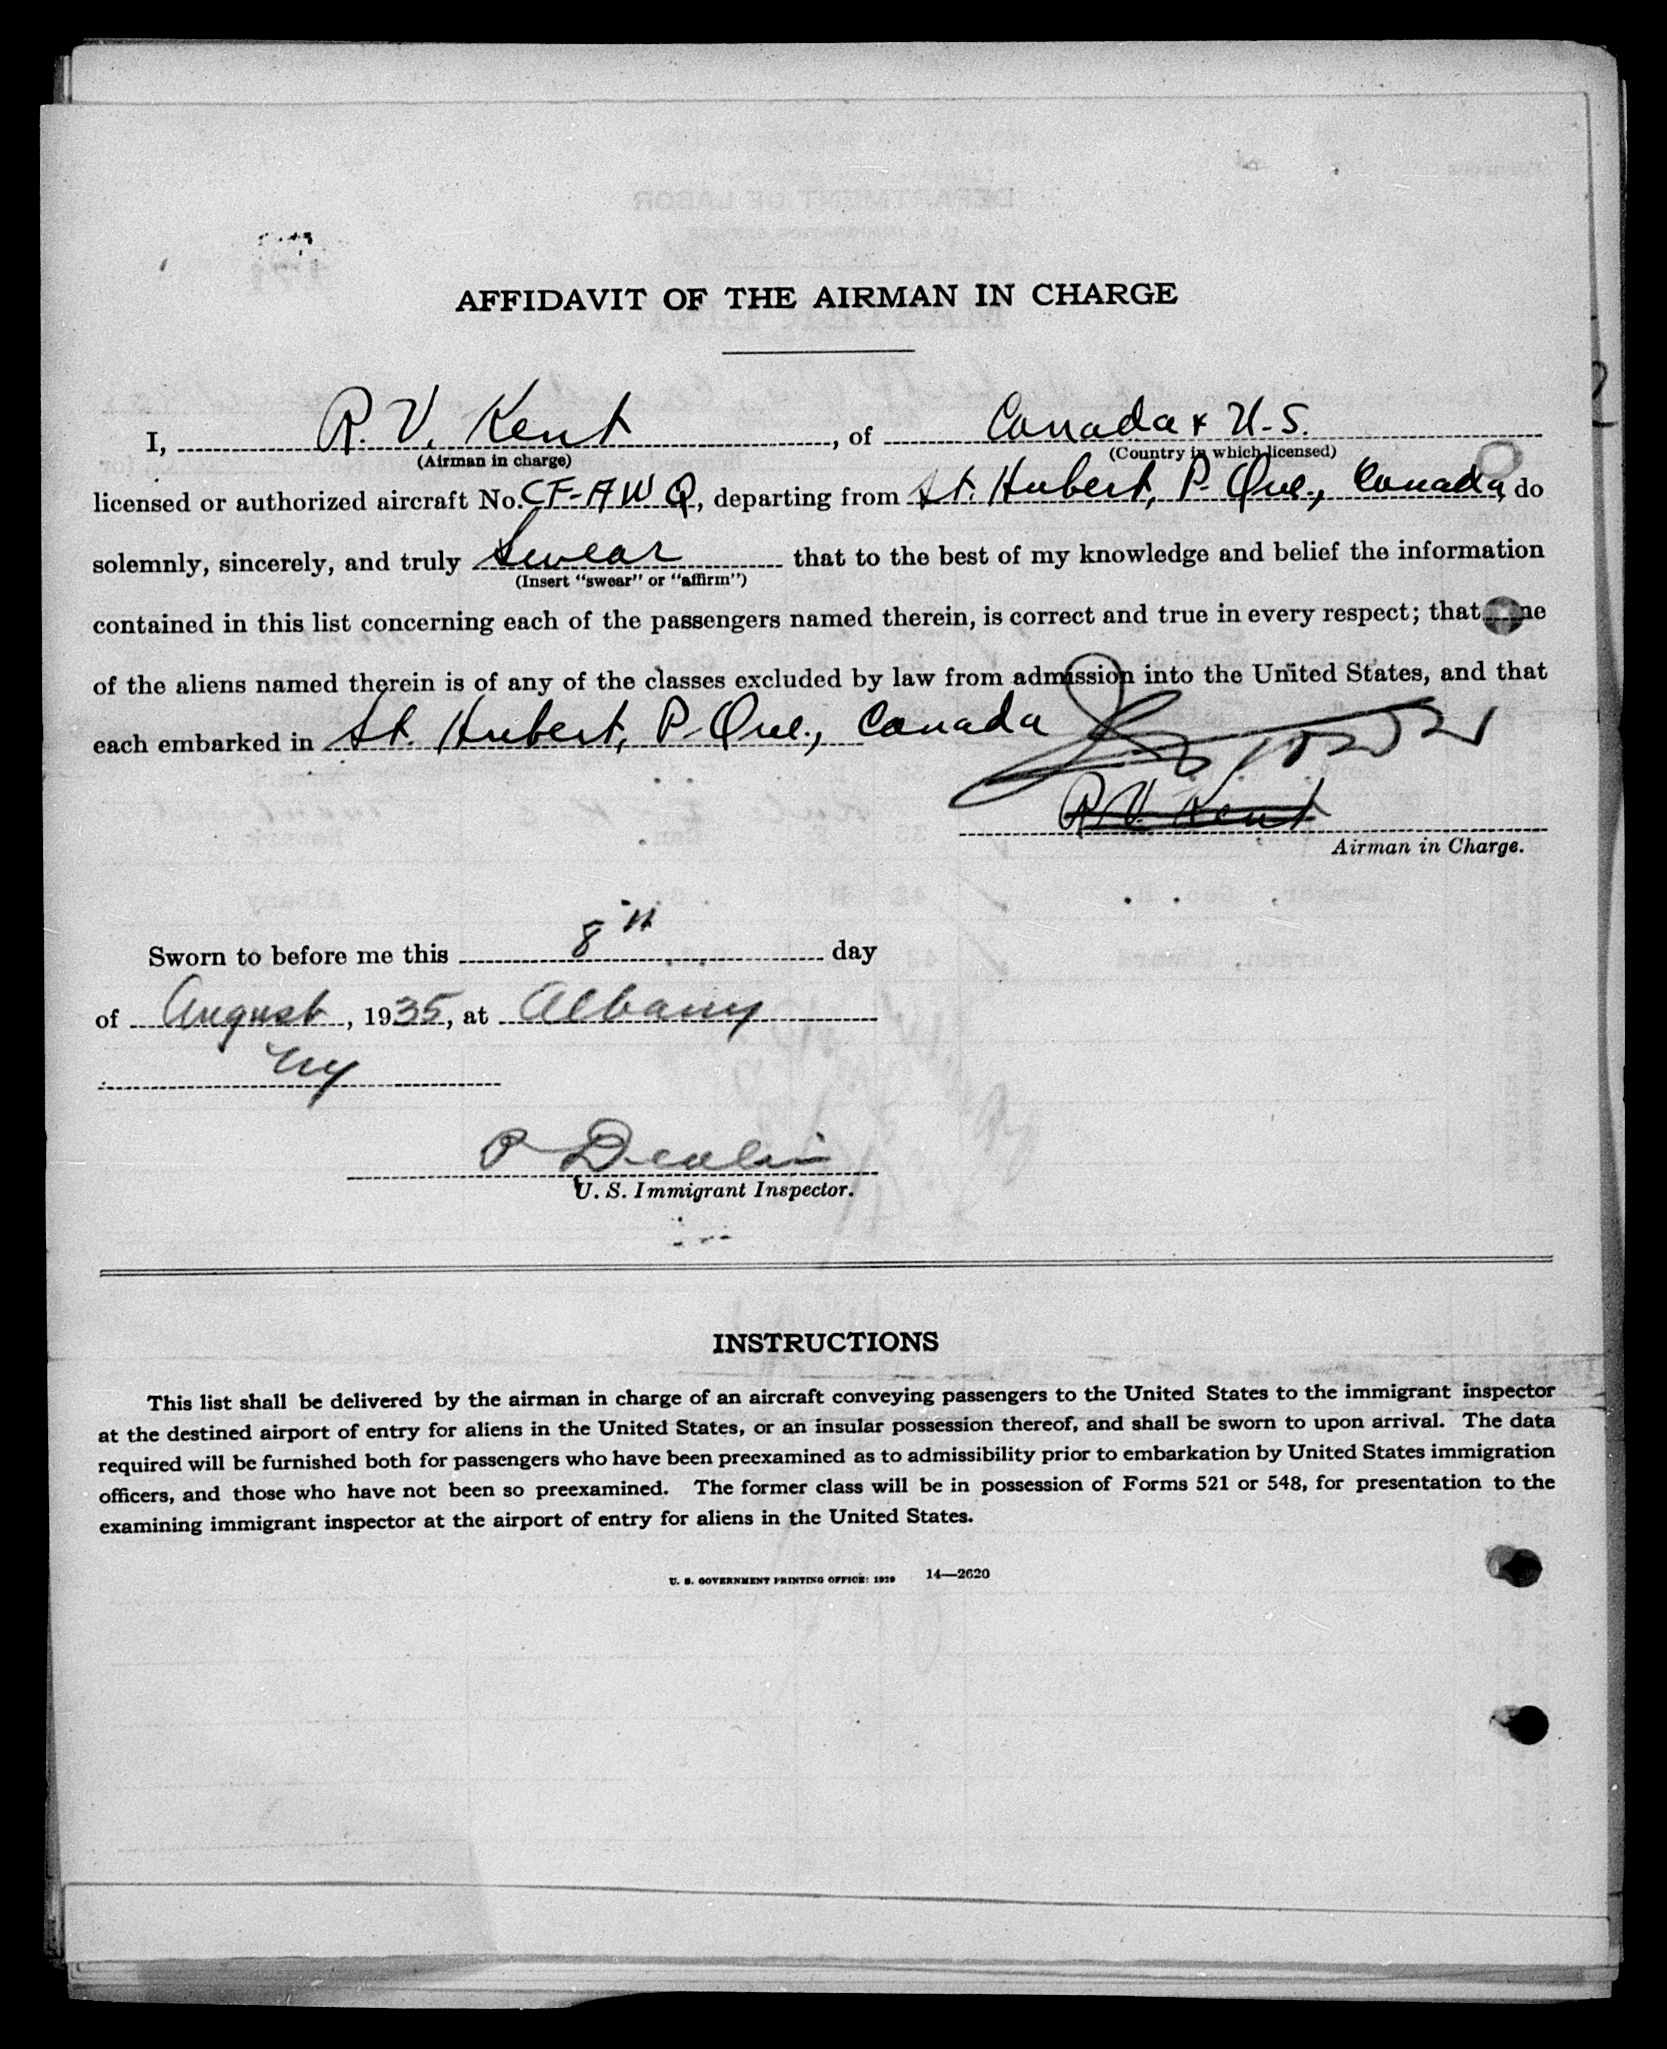 AFFIDAVIT OF THE AIRMAN IN CHARGE
I, R. V. Kent, of Canada & U.S.
(Airman in charge) (Country in which licensed)
licensed or authorized aircraft No. CF-AWQ, departing from St. Hubert, P. Que., Canada, do
solemnly, sincerely, and truly Swear that to the best of my knowledge and belief the information
(Insert "swear" or "affirm")
contained in this list concerning each of the passengers named therein, is correct and true in every respect; that
of the aliens named therein is of any of the classes excluded by law from admission into the United States, and that
each embarked in St. Hubert, P. Que., Canada
R. V. Kent
Airman in Charge.
Sworn to before me this 8th day
of August, 1935, at Albany
NY
P Devlin
U. S. Immigrant Inspector.
INSTRUCTIONS
This list shall be delivered by the airman in charge of an aircraft conveying passengers to the United States to the immigrant inspector
at the destined airport of entry for aliens in the United States, or an insular possession thereof, and shall be sworn to upon arrival. The data
required will be furnished both for passengers who have been preexamined as to admissibility prior to embarkation by United States immigration
officers, and those who have not been so preexamined. The former class will be in possession of Forms 521 or 548, for presentation to the
examining immigrant inspector at the airport of entry for aliens in the United States.
U. S. GOVERNMENT PRINTING OFFICE: 1929 14—2620